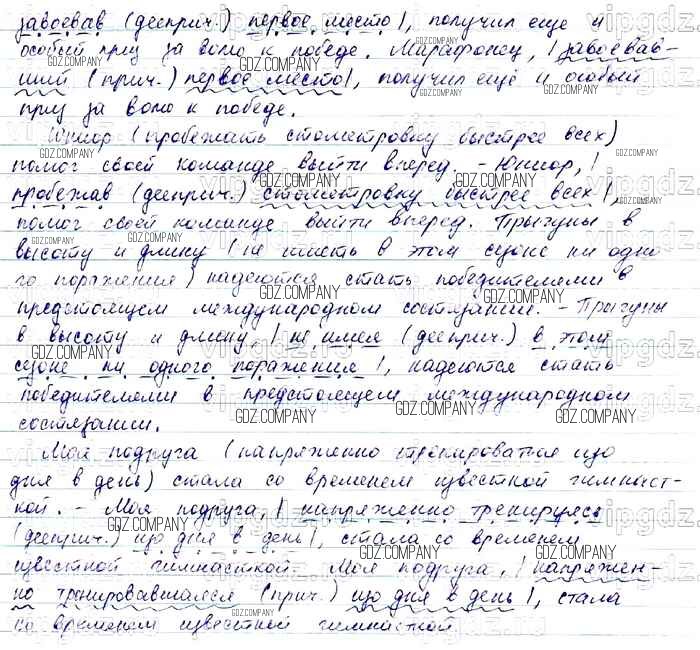 завоевав (дееприч.) первое место|, получил ещё и
особый приз за волю к победе. Марафонец, |завоевав-
ший (прич.) первое место|, получил ещё и особый
приз за волю к победе.
Юниор (пробежать стометровку быстрее всех)
помог своей команде выйти вперед. - Юниор, |
пробежав (дееприч.) стометровку быстрее всех|,
помог своей команде выйти вперед. Прыгуны в
высоту и длину (не иметь в этом сезоне ни одно
го поражения) надеются стать победителями в
предстоящем международном состязании. - Прыгуны
в высоту и длину, | не имея (дееприч.) в этом
сезоне ни одного поражения |, надеются стать
победителями в предстоящем международном
состязании.
Моя подруга (напряженно тренироваться изо
дня в день) стала со временем известной гимнаст-
кой. - Моя подруга, | напряженно тренируясь
(дееприч.) изо дня в день|, стала со временем
известной гимнасткой. Моя подруга, |напряжен-
но тренировавшаяся (прич.) изо дня в день|, стала
со временем известной гимнасткой.